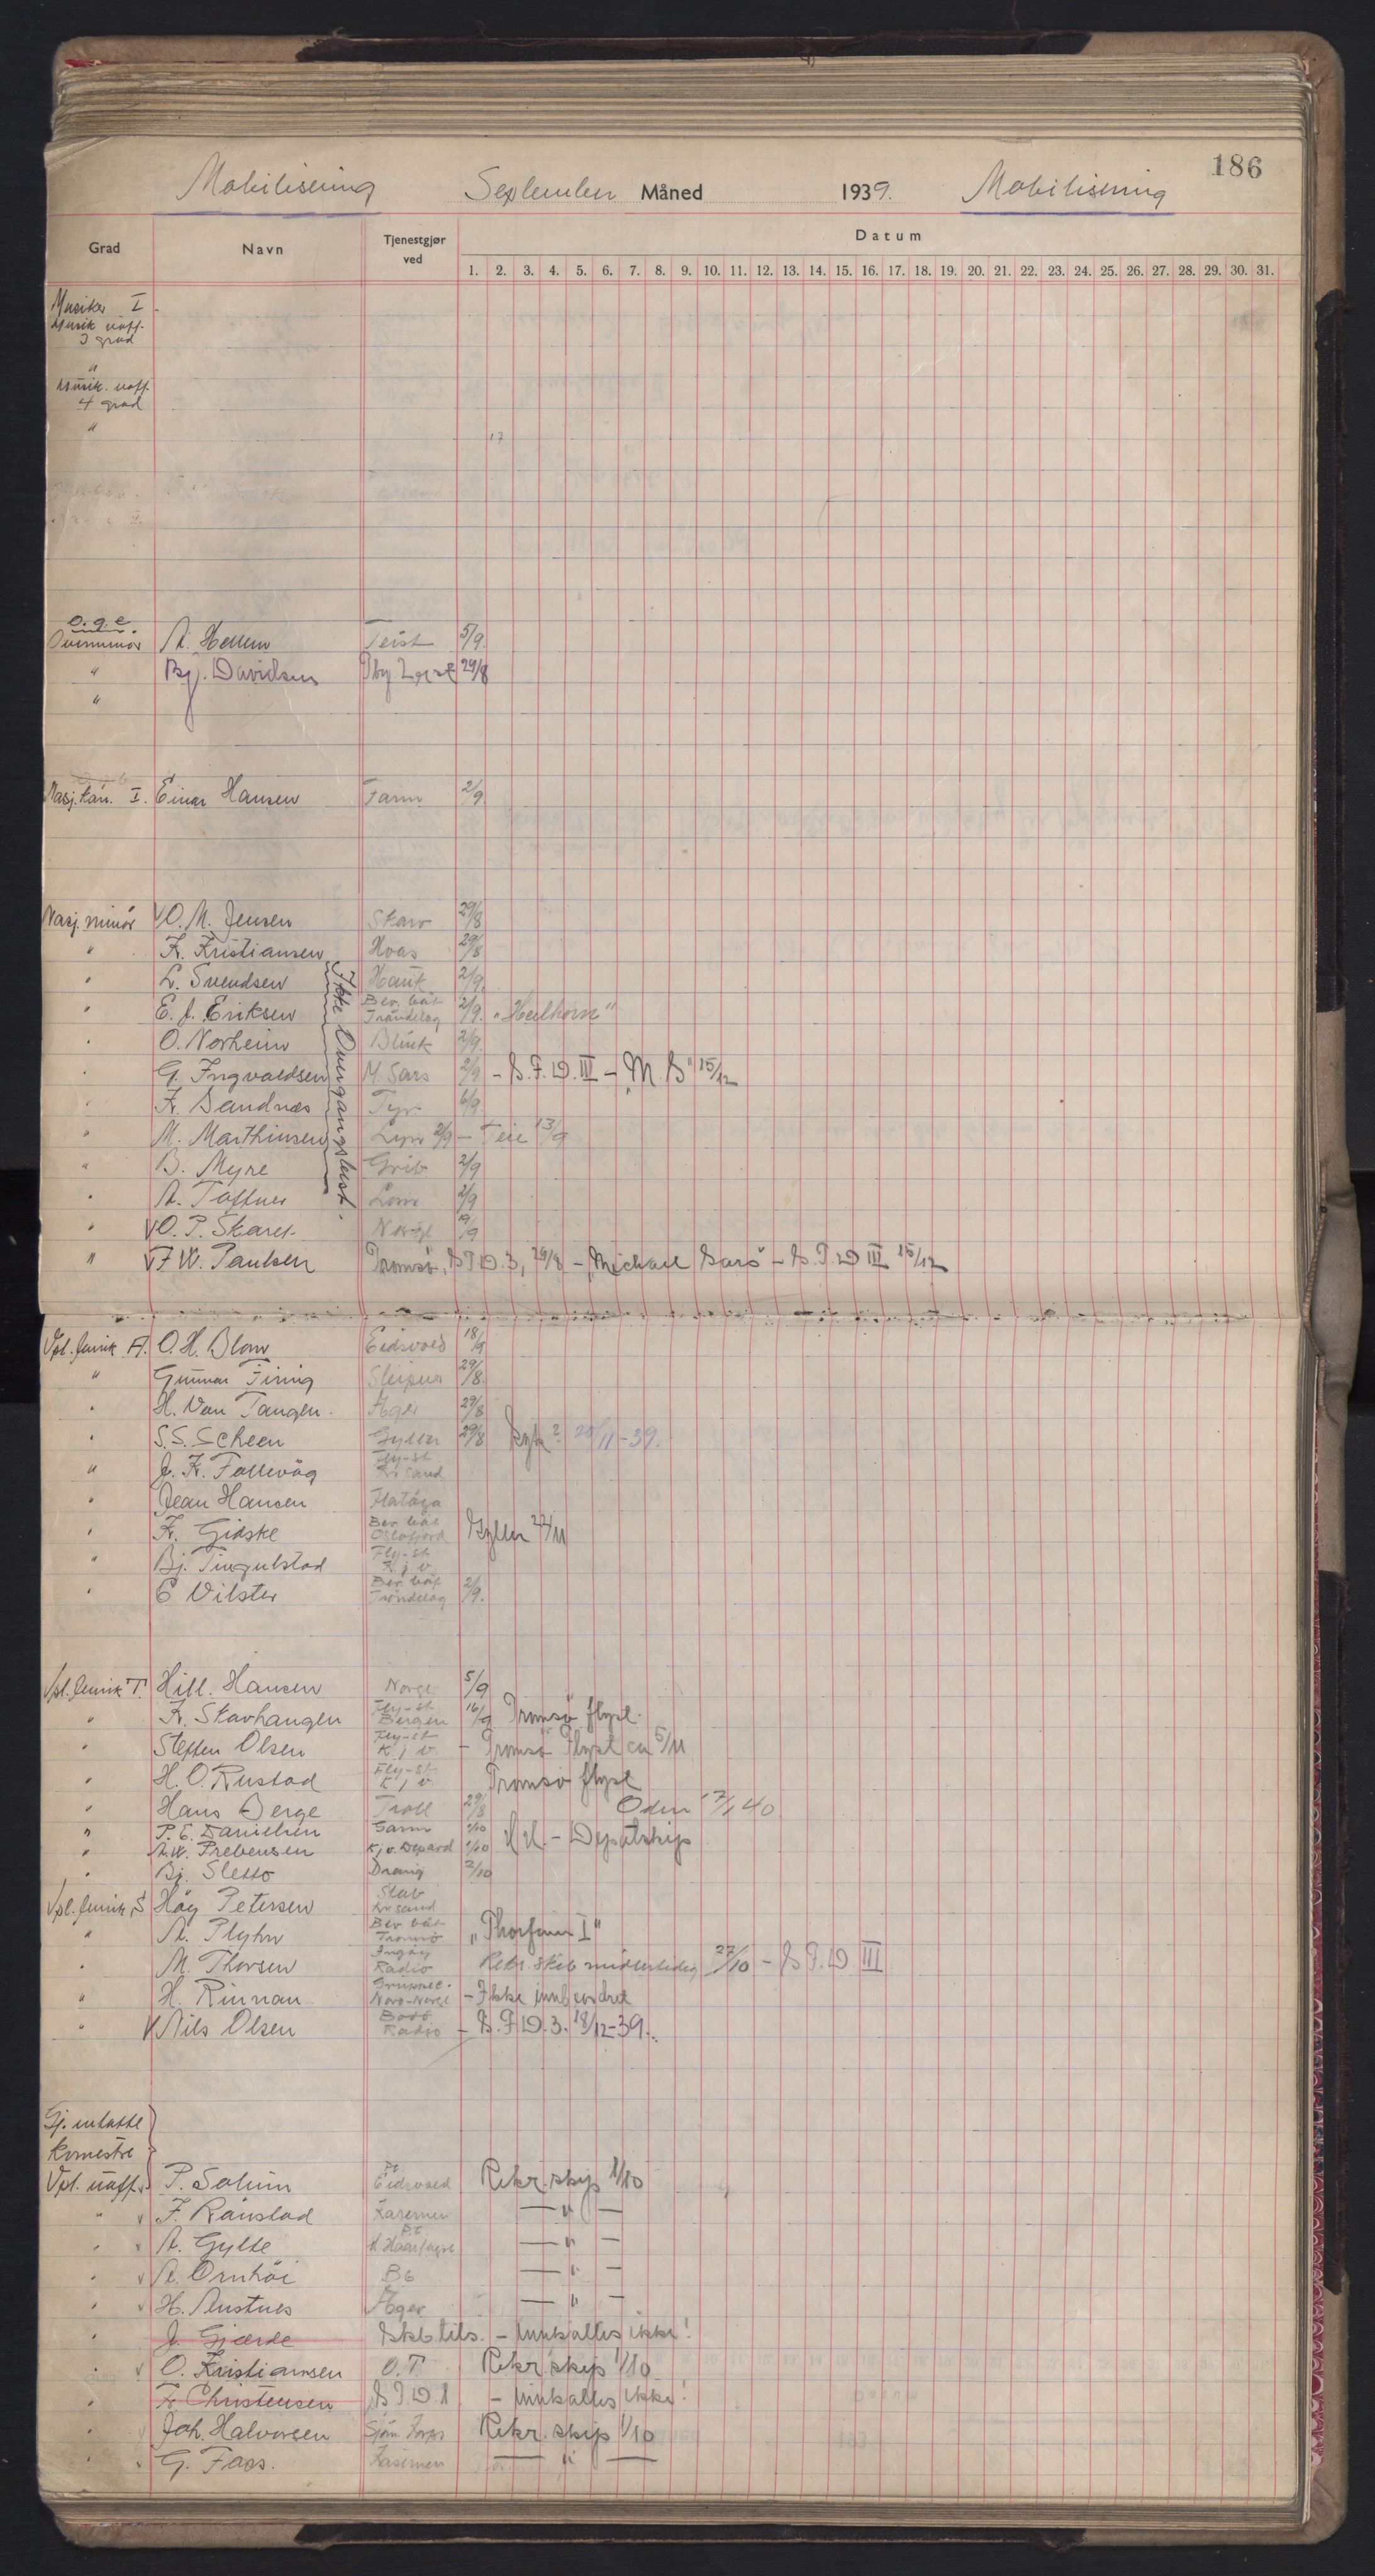 186
Mobilisering September Måned 1939. Mobilisering
Grad Navn Tjenestgjør ved Datum
1. 2. 3. 4. 5. 6. 7. 8. 9. 10. 11. 12. 13. 14. 15. 16. 17. 18. 19. 20. 21. 22. 23. 24. 25. 26. 27. 28. 29. 30. 31.
Musiker I
Musik uoff.
3 grad
"
Musik. uoff.
4 grad
"
17
o.g.e.
Overminör A. Hellem Teist 5/9.
" Bj. Davidsen 29/8
"
Masj. kan. I. Einar Hansen Farm 2/9.
Masj. minör V O. M. Jensen Skarv 29/8
" K. Kristiansen Hvas 29/8
" L. Svendsen Hauk 2/9.
" E. J. Eriksen Bev. båt Tröndelag 2/9. "Heilhorn"
" O. Norheim Blink 2/9.
" G. Ingvaldsen M. Sars 2/9 - S.F.D. III - "M S" 15/12
" K. Sandnes Tyr 6/9.
" M. Marthinsen Lyn 2/9 - Teie 13/9
" B. Myre Grib 2/9
" A. Toftner Lom 2/9
" V O. P. Skaret Norge 19/9
" V F. W. Paulsen Tromsö, S.F.D. 3, 29/8 - "Michael Sars" - S.F.D III 15/12
Ikke Overgangsbest.
Vpl. fenrik A. O. H. Blom Eidsvold 18/9
" Gunnar Tiring Sleipner 29/8.
" H. Van Tangen. Æger 29/8
" S. S. Scheen Gyller 29/8 syk? 20/11-39.
" J. K. Follevåg Fly-st Kr.sand
" Jean Hansen Flatöya
" K. Gidske Bev. båt Oslofjord Gyller 24/11
" Bj. Tingulstad Fly-st K. j. v.
" E Vilster Bev. båt Tröndelag 2/9.
Vpl. fenrik T. Hill. Hansen Norge 5/9
" K. Skavhaugen Fly-st Bergen 16/9 Tromsö flyst.
" Steffen Olsen Fly-st K. j v. - Tromsö Flyst ca 5/11
" H. O. Rustad Fly-st K j v. Tromsö flyst
" Hans Berge Troll 29/8 Odin 17/1 40
" P. E. Danielsen Garm 1/10
" A. W. Prebensen K.j.v. Depard 1/10 H H. - Depotskip
" Bj. Sletto Draug 2/10
Vpl. fenrik, S Höy Petersen Stab Kr.sand
" A. Plyhn Bev. båt Tromsö "Thorfinn I"
" M. Thorsen Ingöy Radio Rekr. skib midlertidig 27/10 - S.F.D III
" H. Rinnan Gruppec. Nord-Norge - Ikke innbeordret
" V Nils Olsen Bodö Radio - S.F.D. 3. 18/12-39.
Gj. intatte
kvmestre
Vpl. uoff. P. Solum Eidsvold Rekr. skip 1/10
" F. Rånstad Kasernen — " —
" A. Gylte H. Haarfagre — " —
" A. Ornhöi B6 — " —
" H. Austnes Æger — " —
" J. Gjærde Skb. tils. - Innkalles ikke!
" O. Kristiansen O. T. Rekr. skip 1/10
" K. Christensen S.F.D 1 - Innkalles ikke!
" Joh. Halvorsen Sjöm. Korps Rekr. skip 1/10
" G. Faas. Kasernen — " —